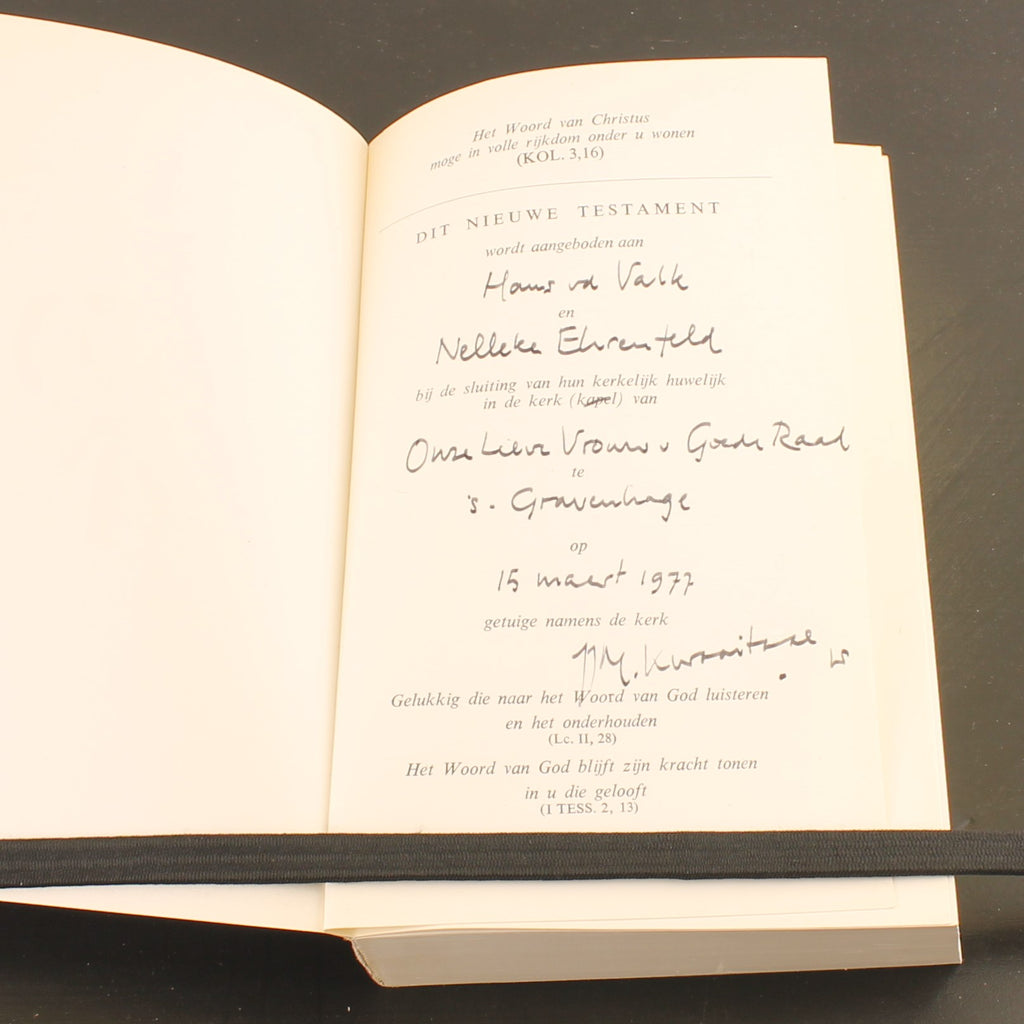 Het Woord van Christus
moge in volle rijkdom onder u wonen
(KOL. 3,16)
DIT NIEUWE TESTAMENT
wordt aangeboden aan
Hans vd Valk
en
Nelleke Ehrenfeld
bij de sluiting van hun kerkelijk huwelijk
in de kerk (kapel) van
Onze Lieve Vrouw v Goede Raad
te
's-Gravenhage
op
15 maart 1977
getuige namens de kerk
Gelukkig die naar het Woord van God luisteren
en het onderhouden
(Lc. II, 28)
Het Woord van God blijft zijn kracht tonen
in u die gelooft
(I TESS. 2, 13)